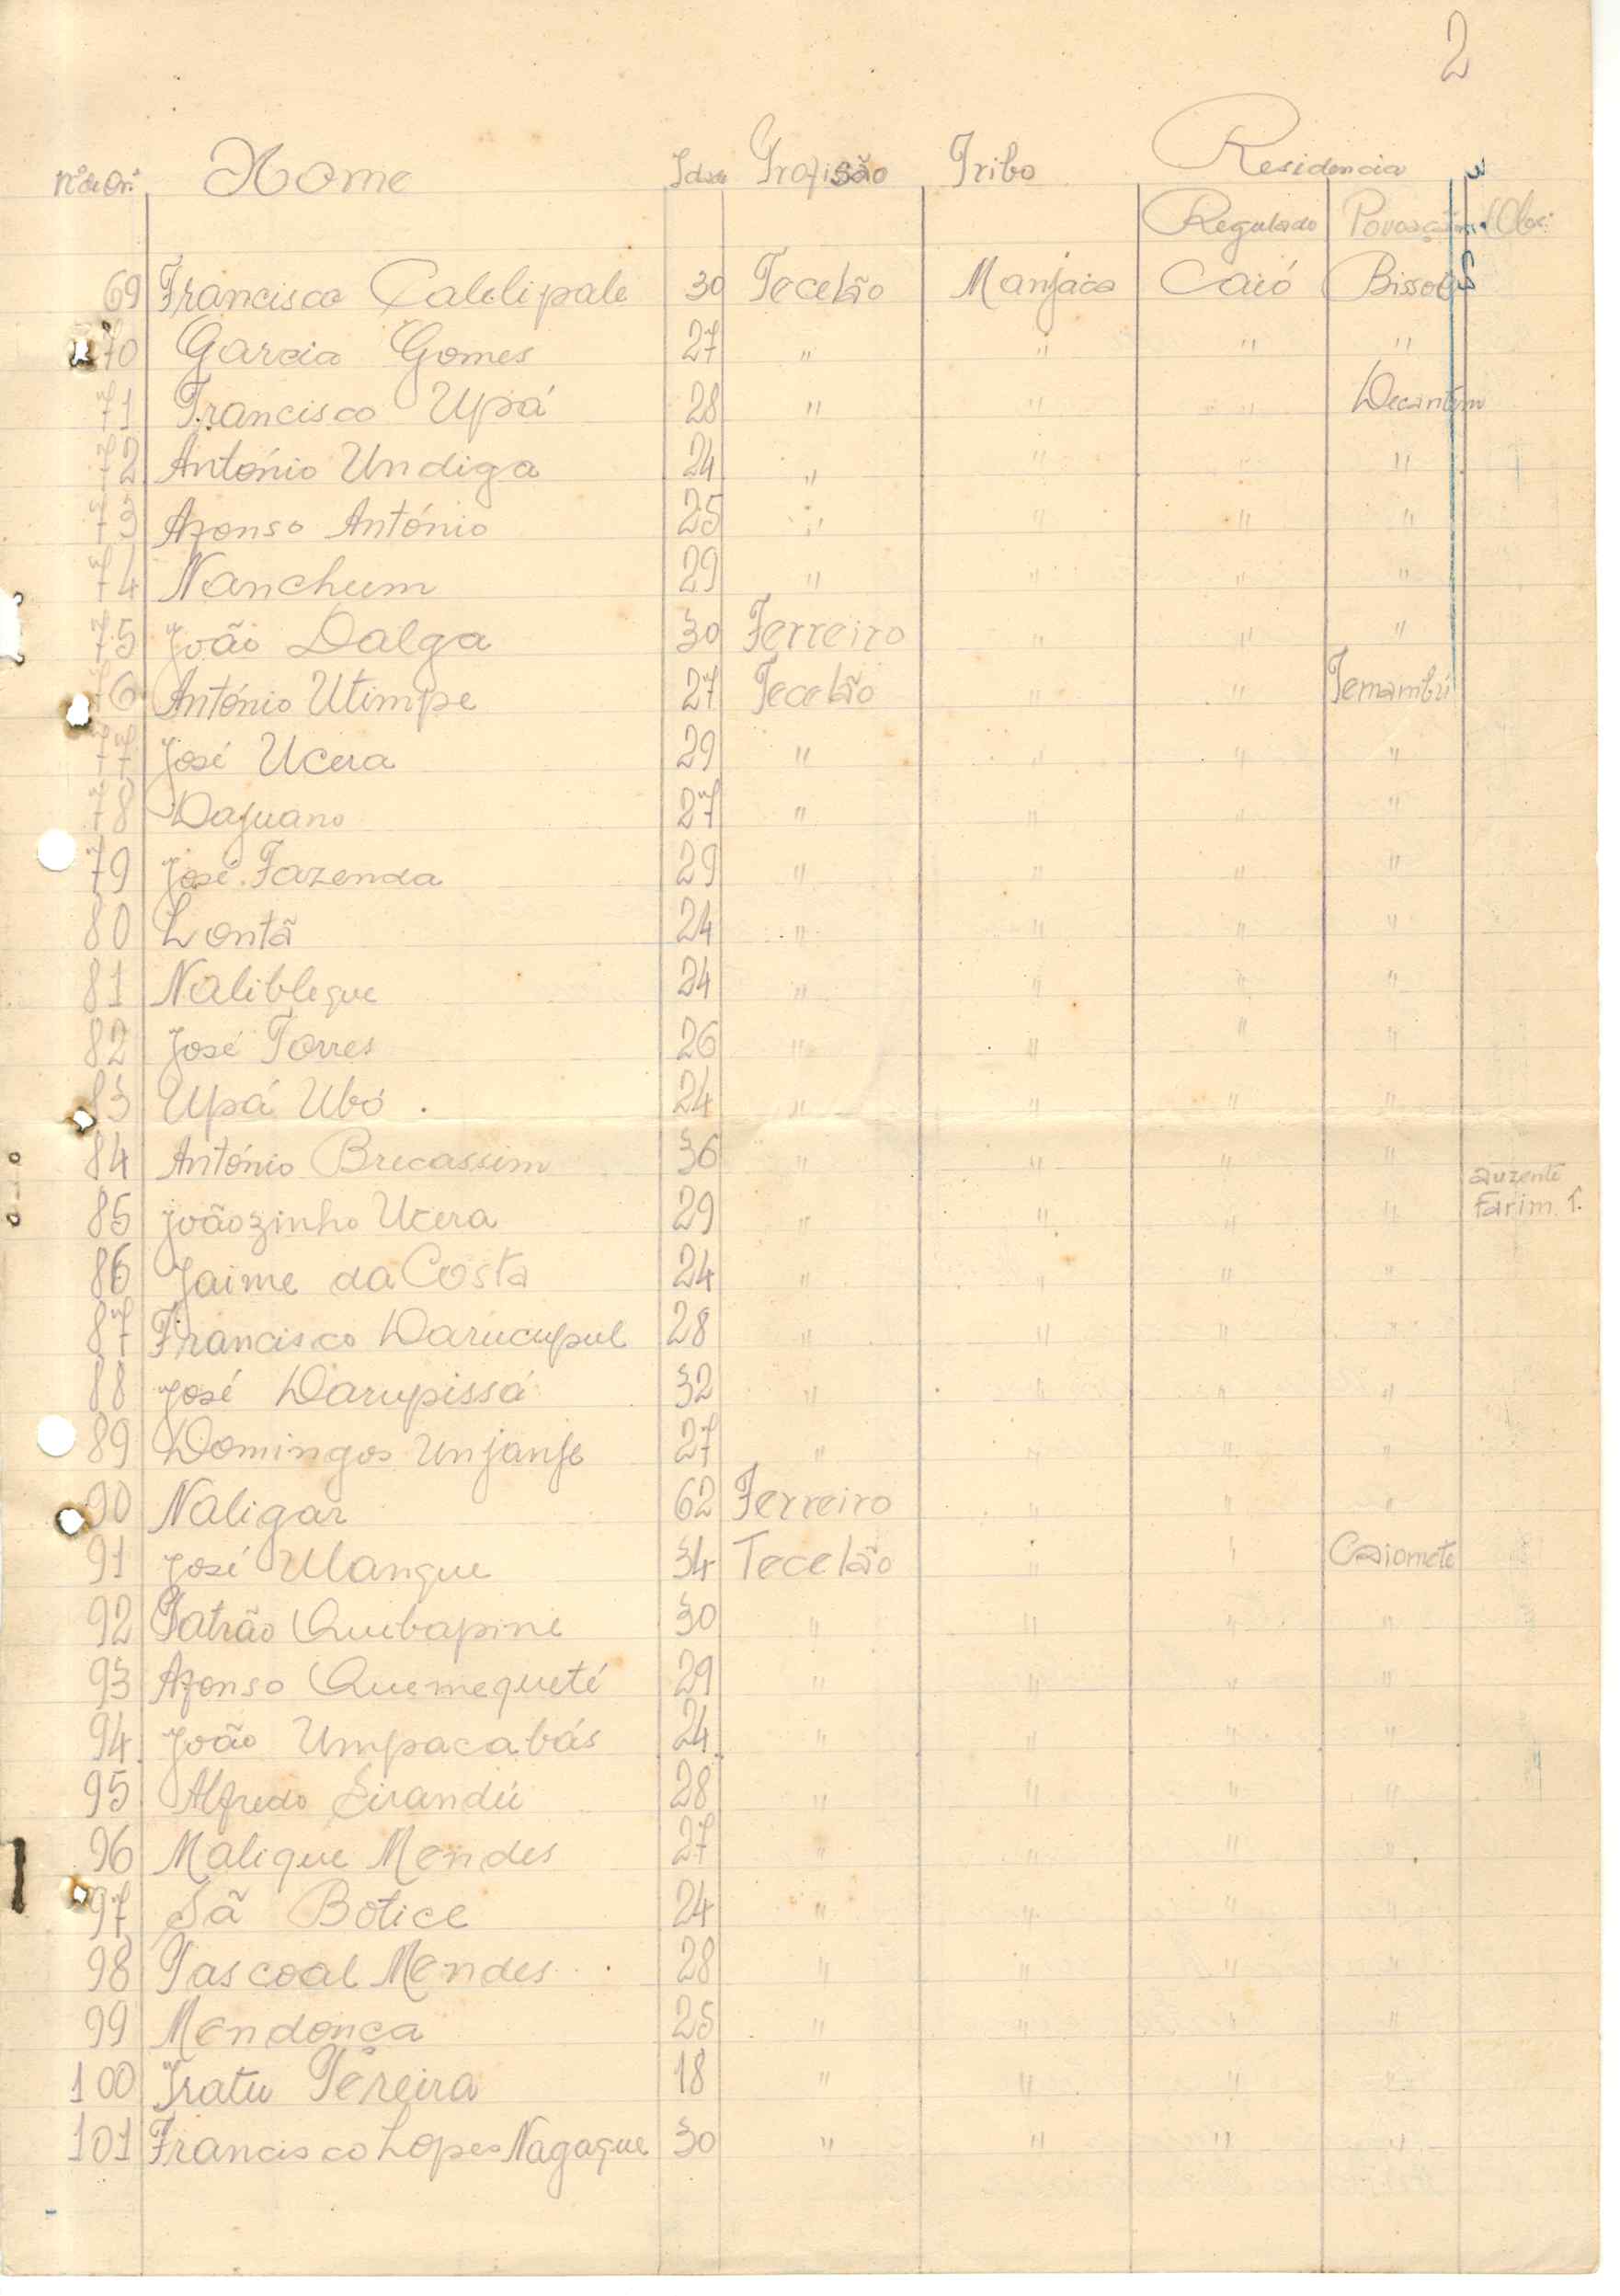 2
Nº de Or. Nome Idade Profissão Tribo Residencia
Regulado Povoação Obs:
69 Francisco Calelipale 30 Tecelão Manjaca Caió
70 Garcia Gomes 27 " " " "
71 Francisco Upá 28 " " " Decantim
72 António Undiga 24 " " " "
73 Afonso António 25 " " " "
74 Nanchum 29 " " " "
75 João Dalga 30 Ferreiro " " "
76 António Utimpe 27 Tecelão " " Temambú
77 José Ucera 29 " " " "
78 Dajuano 27 " " " "
79 José Fazenda 29 " " " "
80 Lontã 24 " " " "
81 Nalibleque 24 " " " "
82 José Torres 26 " " " "
83 Upá Ubó 24 " " " "
84 António Brecassim 36 " " " "
85 Joãozinho Ucera 29 " " " " auzente Farim
86 Jaime da Costa 24 " " " "
87 Francisco Darucupul 28 " " " "
88 José Darupissá 32 " " " "
89 Domingos Unjanje 27 " " " "
90 Naligar 62 Ferreiro " " "
91 José Ulangue 34 Tecelão " " Caiomete
92 Patrão Quebapine 30 " " " "
93 Afonso Quemequeté 29 " " " "
94 João Umpacabás 24 " " " "
95 Alfredo Sirandú 28 " " " "
96 Malique Mendes 27 " " " "
97 Sã Botice 24 " " " "
98 Pascoal Mendes 28 " " " "
99 Mendonça 25 " " " "
100 Tratu Pereira 18 " " " "
101 Francisco Lopes Nagaque 30 " " " "